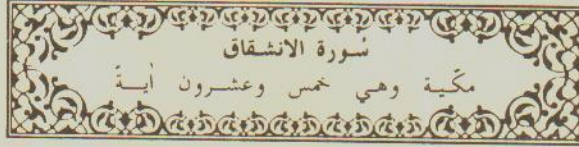 سُورة الانشقاق
مكّية وهي خمس وعشرون أيـةً